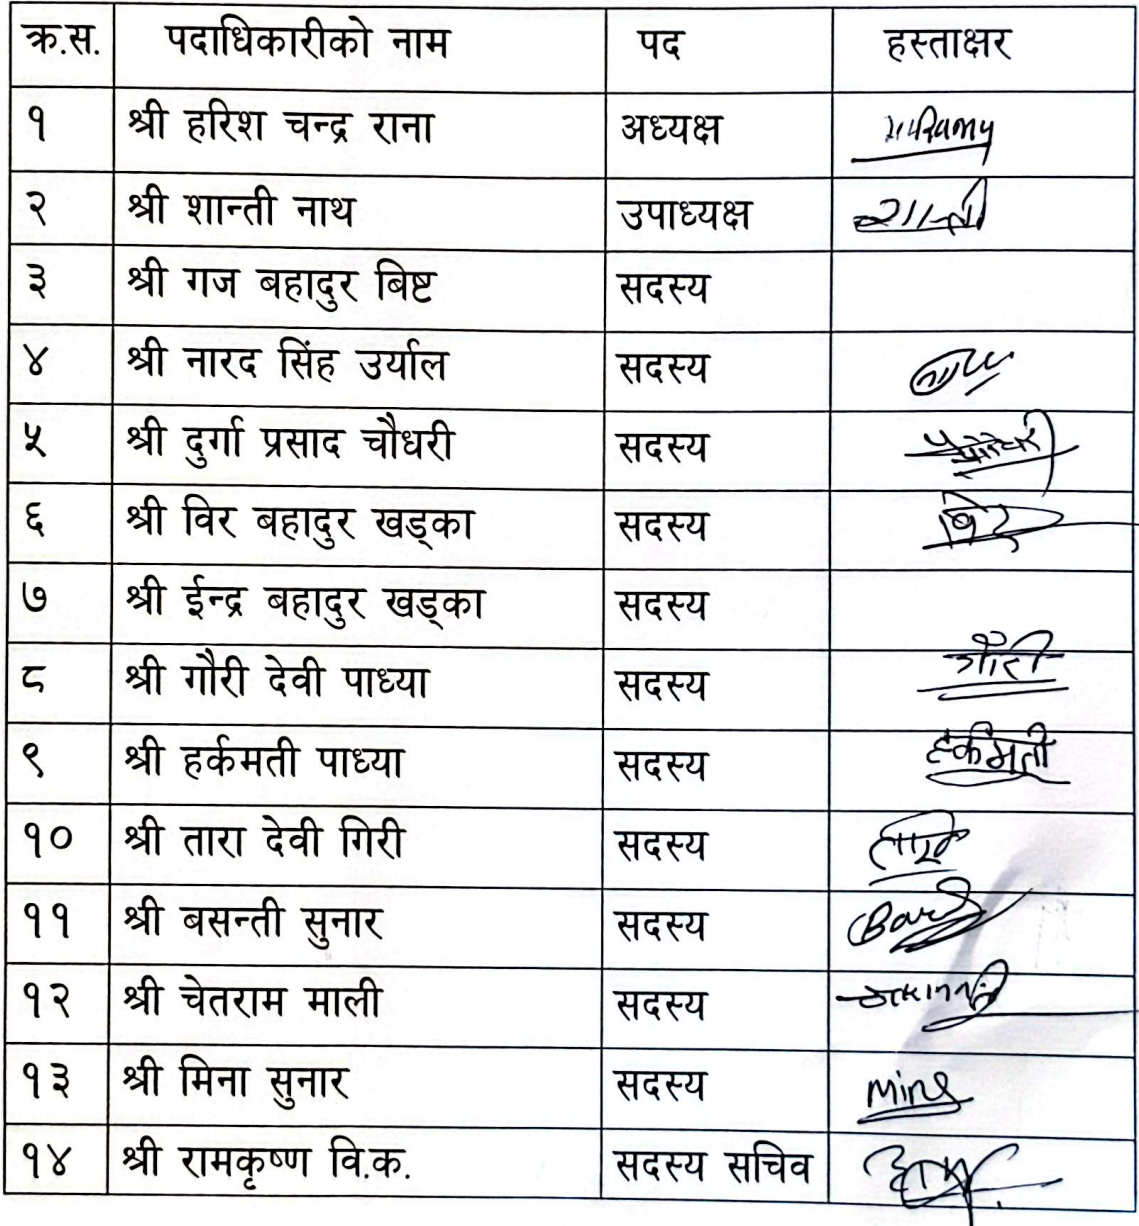 क्र.स. पदाधिकारीको नाम पद हस्ताक्षर
१ श्री हरिश चन्द्र राना अध्यक्ष
२ श्री शान्ती नाथ उपाध्यक्ष शान्ती
३ श्री गज बहादुर बिष्ट सदस्य
४ श्री नारद सिंह उर्याल सदस्य
५ श्री दुर्गा प्रसाद चौधरी सदस्य
६ श्री विर बहादुर खड्का सदस्य विर
७ श्री ईन्द्र बहादुर खड्का सदस्य
८ श्री गौरी देवी पाध्या सदस्य गौरी
९ श्री हर्कमती पाध्या सदस्य हर्कमती
१० श्री तारा देवी गिरी सदस्य
११ श्री बसन्ती सुनार सदस्य
१२ श्री चेतराम माली सदस्य
१३ श्री मिना सुनार सदस्य Mina
१४ श्री रामकृष्ण वि.क. सदस्य सचिव